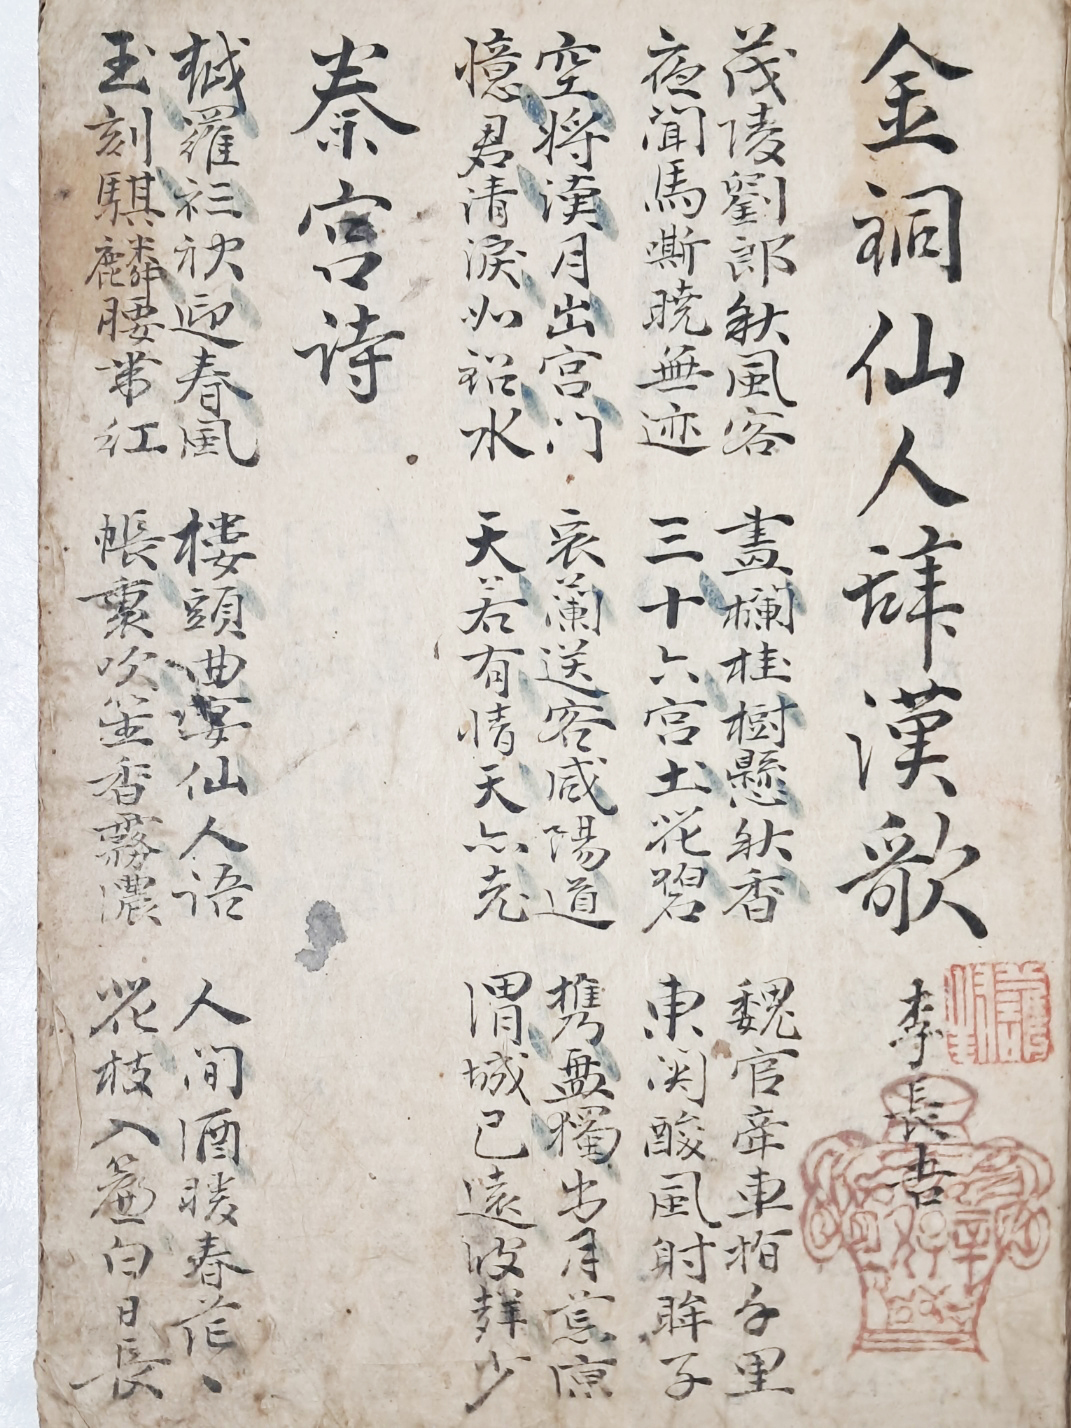 金銅仙人辞漢歌 李長吉
茂陵劉郎秋風客 畫欄桂樹懸秋香 魏官牽車指千里
夜聞馬嘶曉無迹 三十六宮土花碧 東関酸風射眸子
空将漢月出宮门 衰蘭送客咸陽道 携盤獨出月荒凉
憶君清淚如鉛水 天若有情天亦老 渭城已遠波聲少
秦宮诗
越羅衫袂迎春風 樓頭曲宴仙人语 人间酒暖春茫丶
玉刻騏麟腰帯红 帳裏吹笙香霧濃 花枝入簾白日長